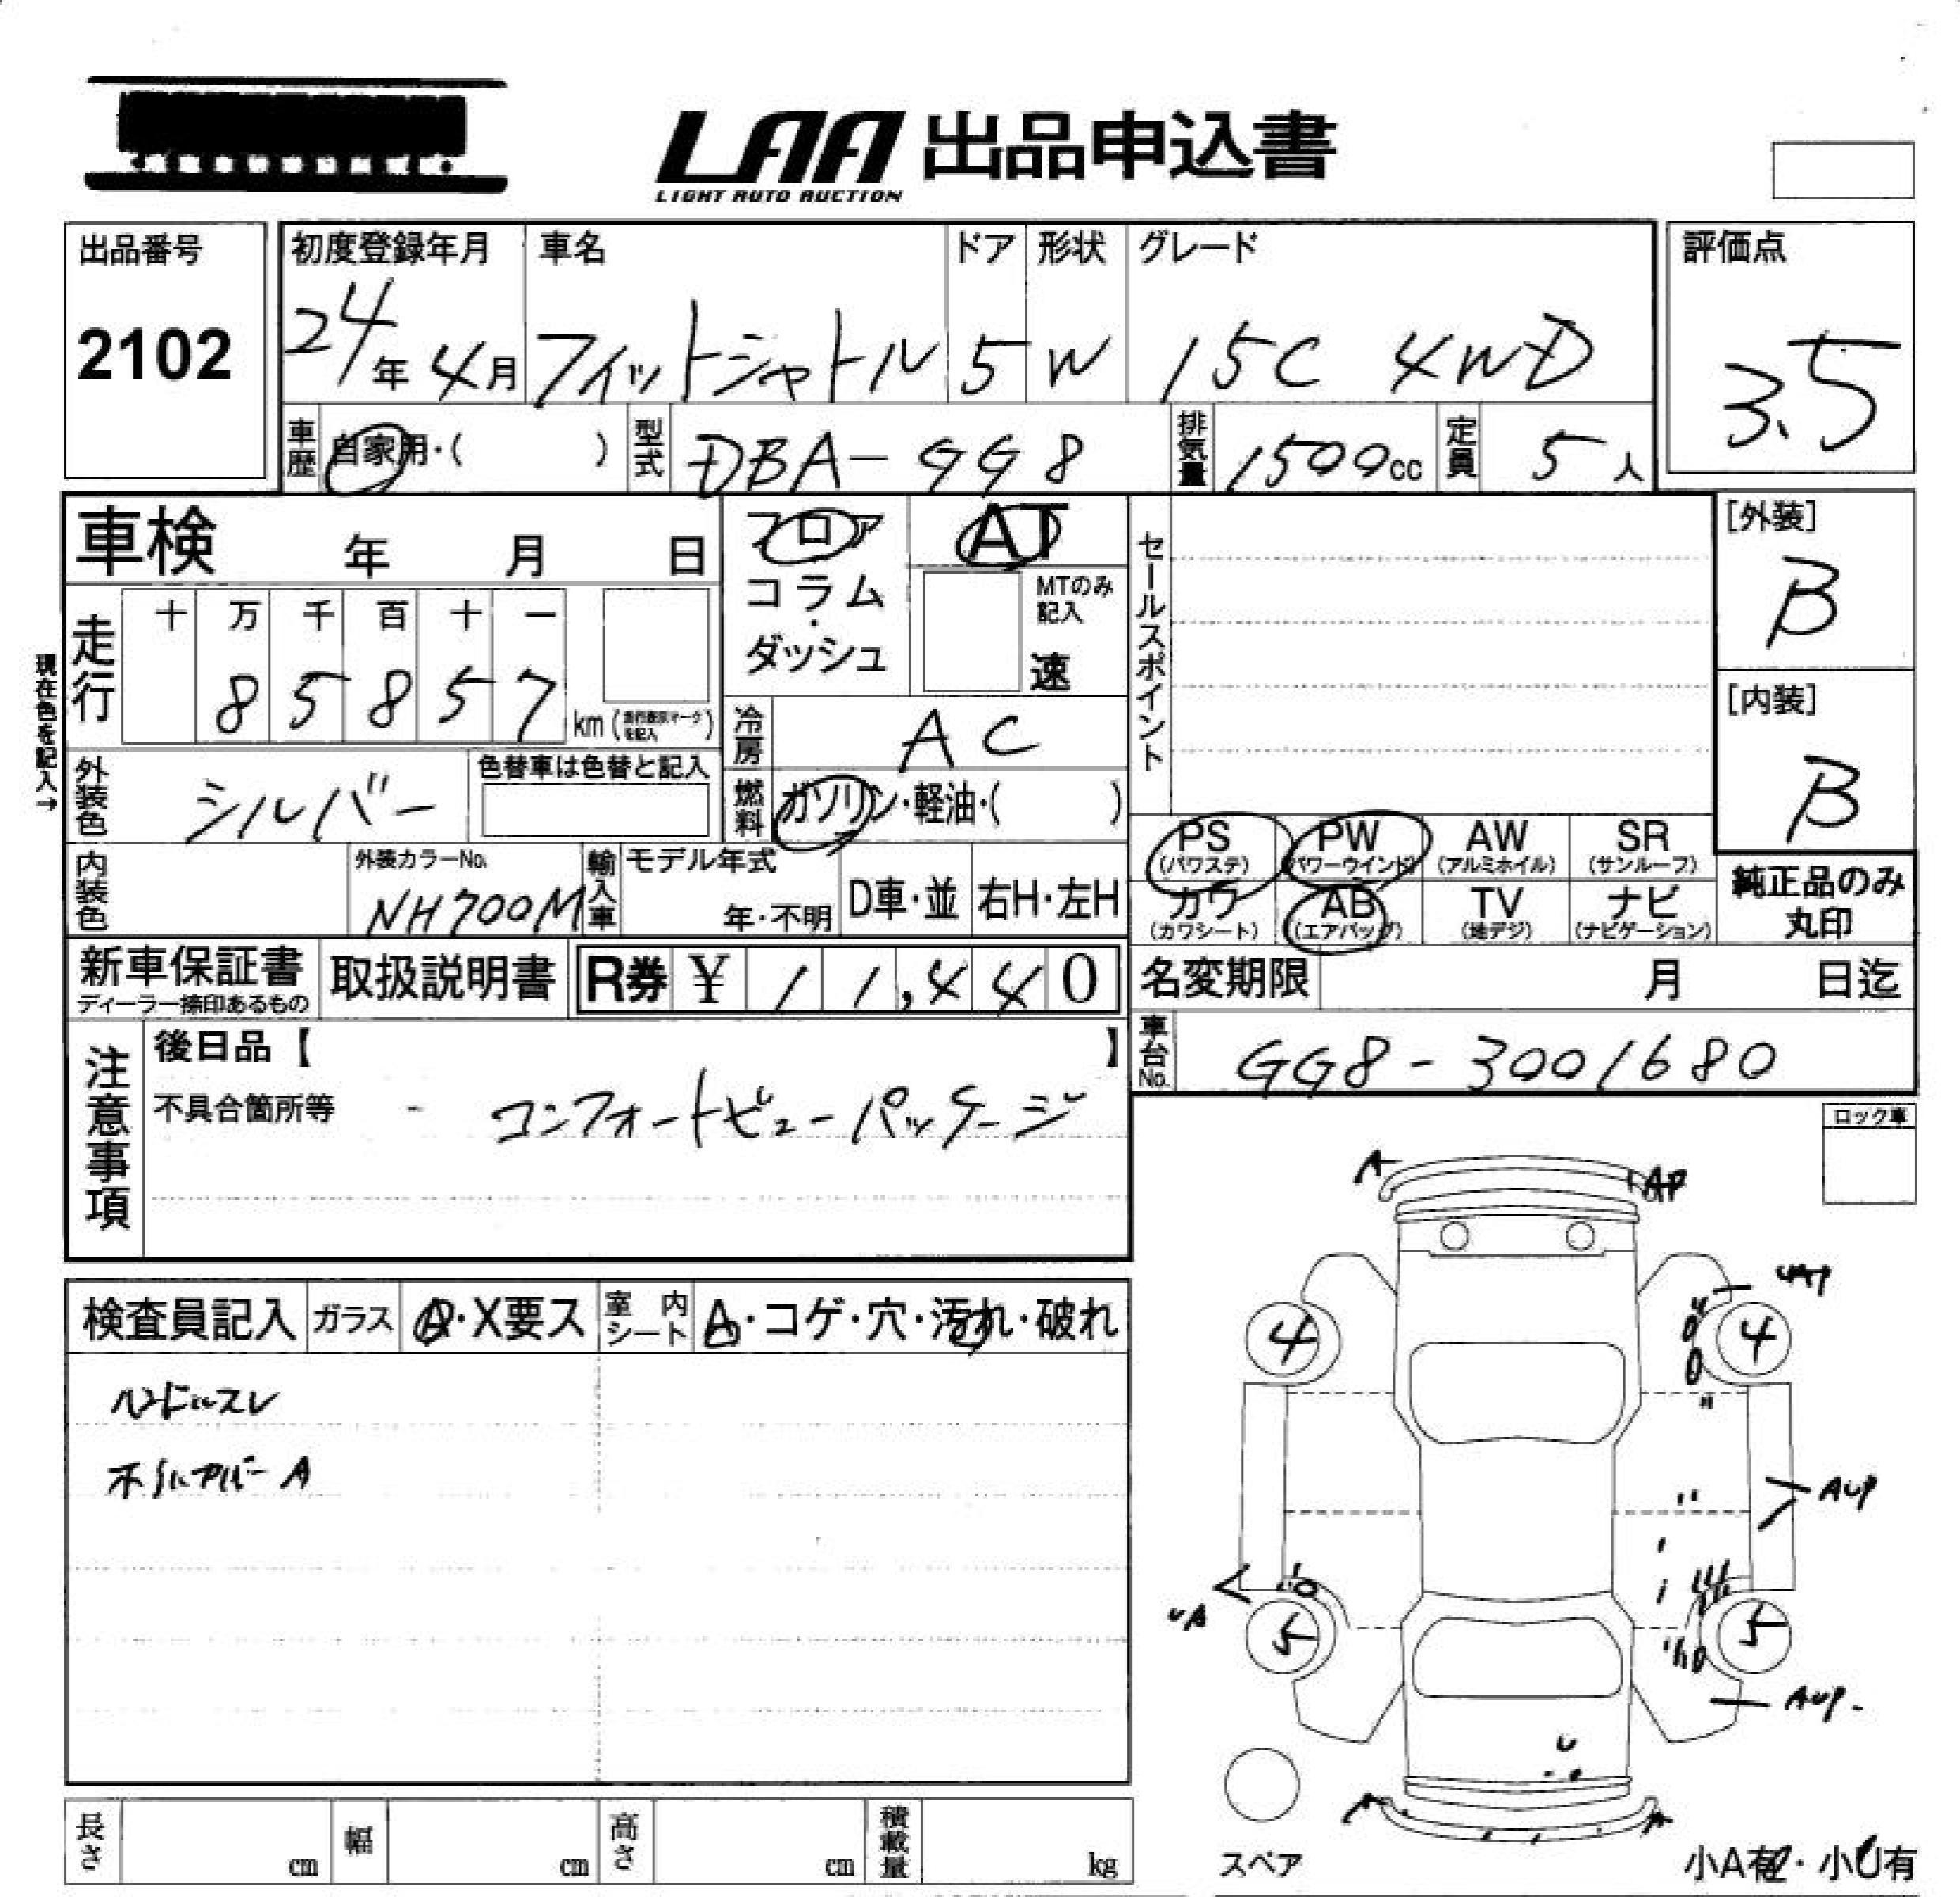 LAA 出品申込書
LIGHT AUTO AUCTION
出品番号
2102
初度登録年月
24年 4月
車名
フィットシャトル
ドア
5
形状
W
グレード
15C 4WD
評価点
3.5
車歴
自家用・( )
型式
DBA-GG8
排気量
1500cc
定員
5人
車検 年 月 日
フロア
コラム・ダッシュ
AT
MTのみ記入
速
セールスポイント
[外装]
B
[内装]
B
現在色を記入→
走行
十 万 千 百 十 一
8 5 8 5 7
km (走行表示マークを記入)
冷房
AC
外装色
シルバー
色替車は色替と記入
燃料
ガソリン・軽油・( )
内装色
外装カラーNo.
NH700M
輸入車
モデル年式
年・不明
D車・並
右H・左H
PS (パワステ)
PW (パワーウインド)
AW (アルミホイル)
SR (サンルーフ)
カワ (カワシート)
AB (エアバッグ)
TV (地デジ)
ナビ (ナビゲーション)
純正品のみ丸印
新車保証書
ディーラー捺印あるもの
取扱説明書
R券 ¥ 1 1,4 4 0
名変期限 月 日迄
車台No.
GG8-3001680
注意事項
後日品【 】
不具合箇所等 - コンフォートビューパッケージ
ロック車
検査員記入
ガラス
A・X要ス
室内シート
A・コゲ・穴・汚れ・破れ
ハンドルスレ
ホイルカバーA
A
AP
UAP
4
4
AUP
UA
5
5
AUP.
A
A
スペア
小A有・小U有
長さ cm
幅 cm
高さ cm
積載量 kg